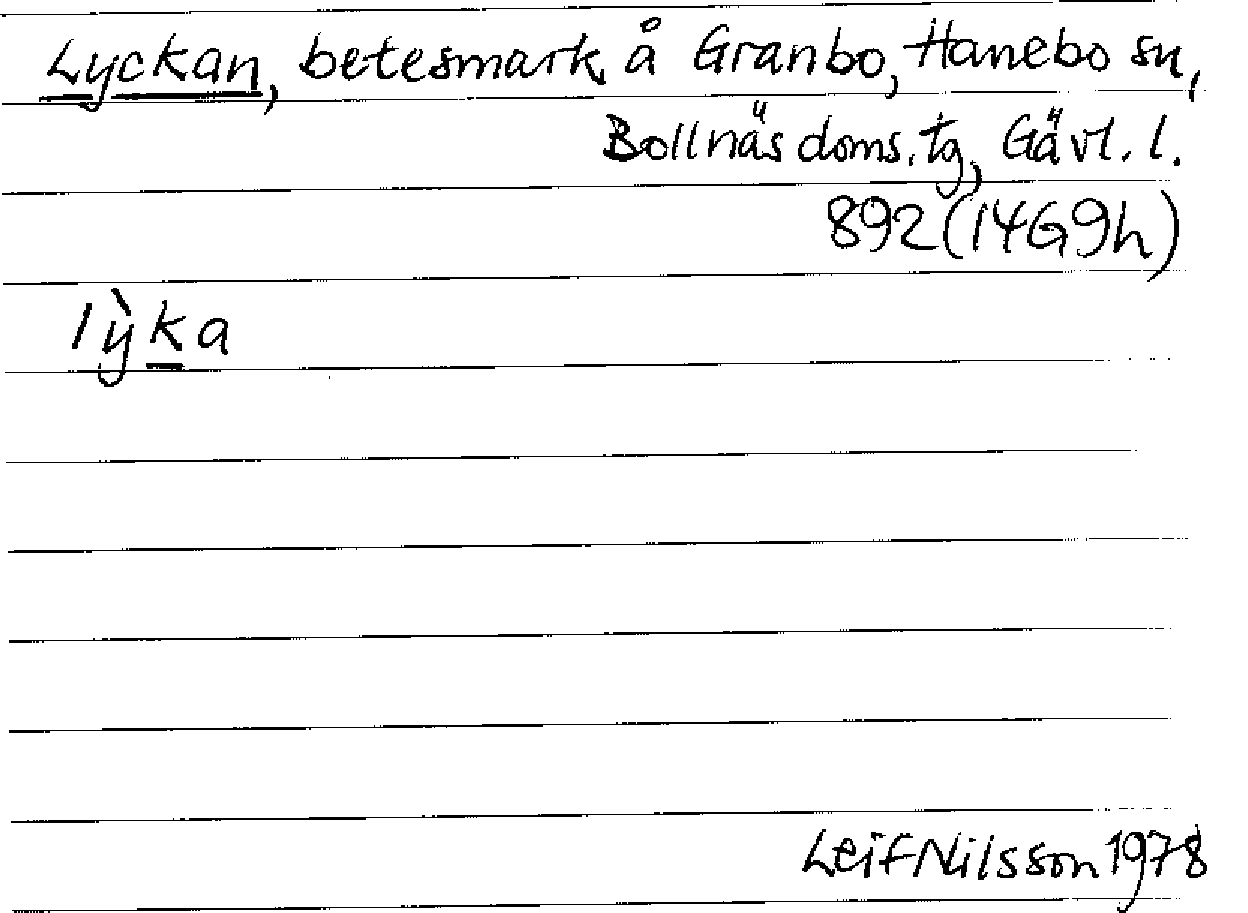 Lyckan, betesmark å Granbo, Hanebo sn,
Bollnäs doms.tg, Gävl. l.
892 (14G9h)
lỳka
Leif Nilsson 1978